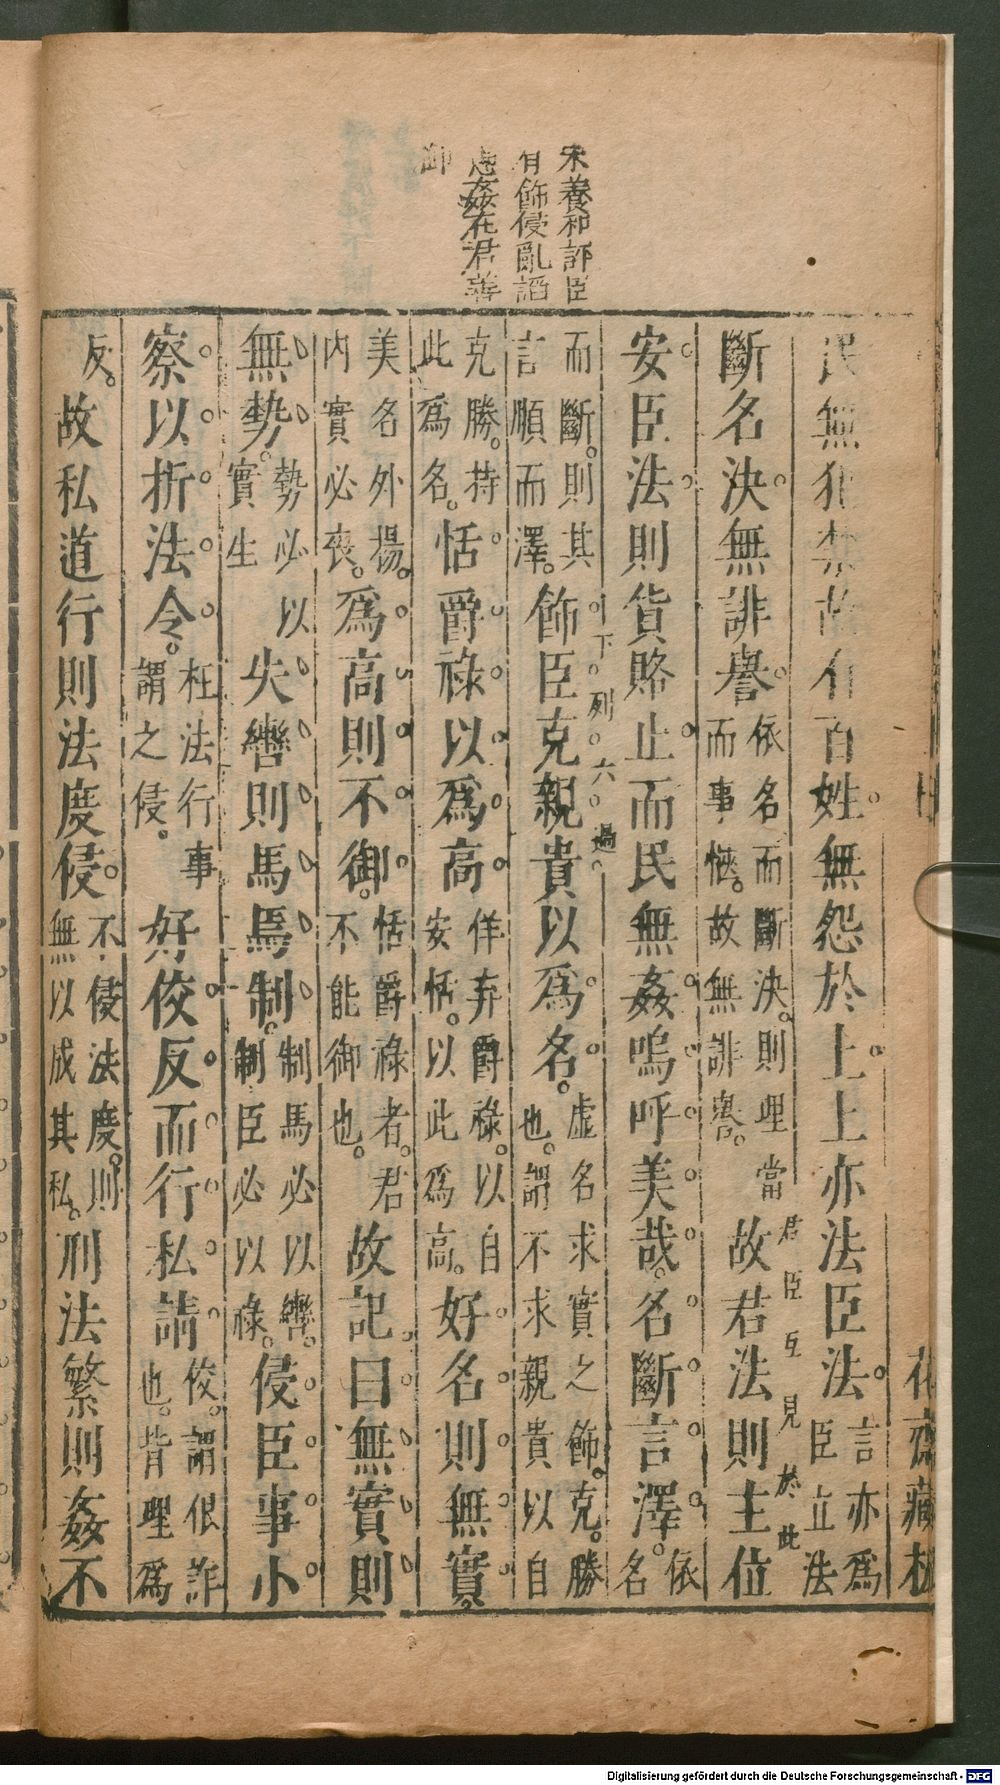 宋養和評臣
有飾侵亂謟
姦在君善
御
民無犯禁故有百姓無怨於上上亦法臣法言亦爲臣立法
斷名決無誹譽依名而斷決則理當而事愜故無誹譽故君法則主位
君臣互見於此
安臣法則貨賂止而民無姦嗚呼美哉名斷言澤依名
下列六過
而斷則其言順而澤飾臣克親貴以爲名虛名求實之飾克勝也謂不求親貴以自
克勝持此爲名恬爵祿以爲高佯弃爵祿以自安恬以此爲高好名則無實
美名外揚内實必喪爲高則不御恬爵祿者君不能御也故記曰無實則
無勢勢必以實生失轡則馬焉制制馬必以轡制臣必以祿侵臣事小
察以折法令枉法行事謂之侵好佼反而行私請佼謂佷詐也背理爲
反故私道行則法度侵不侵法度則無以成其私刑法繁則姦不
花齋藏板
Digitalisierung gefördert durch die Deutsche Forschungsgemeinschaft - DFG